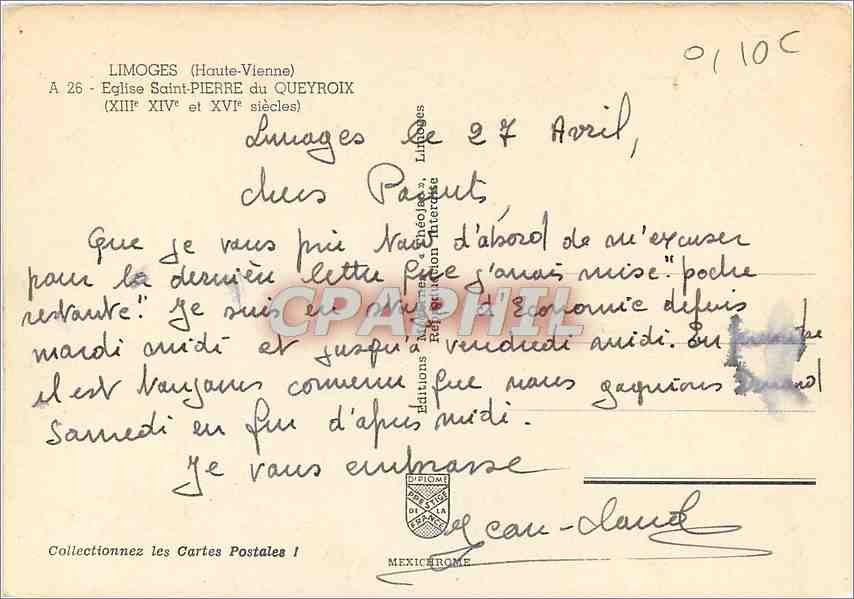 0,10 c
LIMOGES (Haute-Vienne)
A 26 - Eglise Saint-PIERRE du QUEYROIX
(XIIIe XIVe et XVIe siècles)
Limoges le 27 Avril,
chers Parents,
Que je vous prie tout d'abord de m'excuser
pour la dernière lettre que j'avais mise "poche
restante". Je suis en stage d'Economie depuis
mardi midi et jusqu'à vendredi midi. En
il est toujours convenu que nous gagnions
Samedi en fin d'après midi.
Je vous embrasse
Jean-Claude
Editions « Théojac », Limoges
Reproduction Interdite
CPAPHIL
DIPLOME
PRESTIGE
DE LA
FRANCE
Collectionnez les Cartes Postales !
MEXICHROME